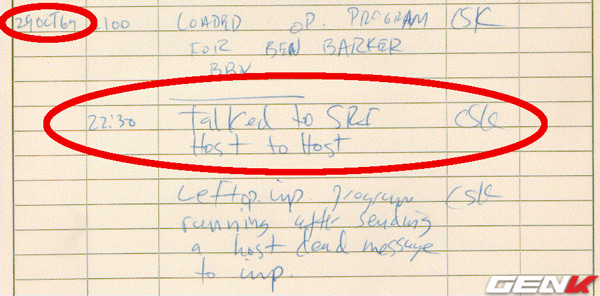 29 OCT 69 2100 LOADED OP. PROGRAM CSK
FOR BEN BARKER
BBN
22:30 Talked to SRI CSK
Host to Host
Left op. imp. program CSK
running after sending
a host dead message
to imp.
GENK